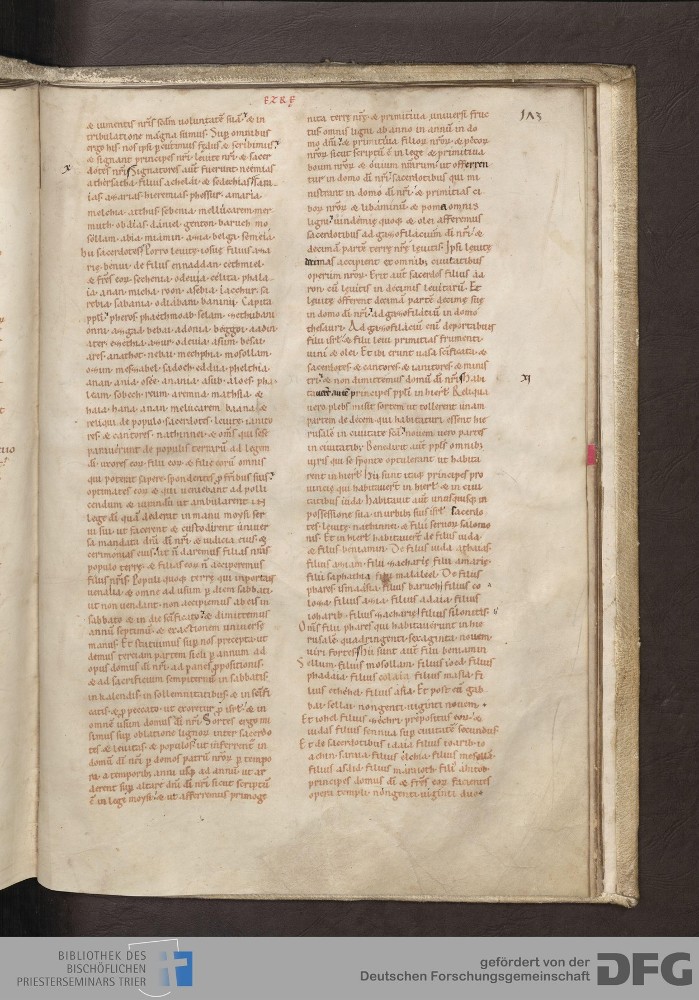 EZRE
& iumentis nr̄is scdm voluntatē suā. & in
tribulatione magna sumus. Sup omnibus
ergo his nos ipsi percutimus fedus & scribimus
& signant principes nr̄i leuite nr̄i & sacer
dotes nr̄i. Signatores aut̄ fuerunt neemias
athersatha filius achelai & sedechias sara
ias amarias hieremias phessur amaria
melchia atthus sebenia melluc arem mer
muth obdias daniel genton baruch mo
sollam abia miamin azia belga semeia
hii sacerdotes. Porro leuite iosue filius aza
rie bennu de filiis ennaddan cethmiel
& fr̄es eoꝝ sechenia odeuia celita phala
ia anan micha roon asebia zacchur sa
rebia sabania odia bani baninu. Capita
ppli pheros phaethmoab elam zethu bani
onni azgad bebai adonia beggoi aadin
ater ezechia azur odeuia asum besai
ares anathot nebai mechphia mosollam
ozun messabel sadoch eddua phelthia
anan ania osee anania asub aloes pha
leam sobech reum arenna mathsia &
haia hana anan melucarem baana &
reliqui de populo sacerdotes leuite ianito
res & cantores nathinnei & om̄s qui sese
panuerunt de populis terrarū ad legem
dī uxores eoꝝ filii eoꝝ & filie eorū omnis
qui poterat sapere spondentes ꝓ fr̄ibus suis
optimates eoꝝ & qui ueniebant ad polli
cendum & iurandū ut ambularent in
lege dī quā dederat in manu moysi ser
ui sui ut facerent & custodirent uniuer
sa mandata dn̄i dī nr̄i & iudicia eius &
cerimonias eius. & ut n̄ daremus filias nr̄as
populo terre & filias eoꝝ n̄ acciperemus
filiis nr̄is. Populi quoq; terre qui important
uenalia & omne ad usum ꝑ diem sabbati
ut non uendant non accipiemus ab eis in
sabbato & in die sc̄ificato. & dimittemus
annū septimū & exactionem uniuerse
manus. Et statuimus sup nos precepta ut
demus terciam partem sicli ꝑ annum ad
opus domus dī nr̄i ad panes ꝓpositionis
& ad sacrificium sempiternū in sabbatis
in kalendis in sollemnitatibus & in sc̄ifi
catis & ꝓ peccato ut exoretur ꝓ isrł & in
omnē usum domus dī nr̄i. Sortes ergo mi
simus sup oblatione lignoꝝ inter sacerdo
tes & leuitas & populos ut inferrent̄ in
domū dī nr̄i ꝑ domos patrū nr̄oꝝ ꝑ tempo
ra a temporib; anni usq; ad annū ut ar
derent sup altare dn̄i dī nr̄i sicut scriptū
ē in lege moysi & ut afferremus primoge
nita terre nr̄e & primitiua uniuersi fruc
tus omnis ligni ab anno in annū in do
mo dn̄i & primitiua filioꝝ nr̄oꝝ & pecoꝝ
nr̄oꝝ sicut scriptū ē in lege & primitiua
boum nr̄oꝝ & ouium nr̄arum ut offerren
tur in domo dī nr̄i sacerdotibus qui mi
nistrant in domo dī nr̄i & primitias ci
boꝝ nr̄oꝝ & libaminū & poma omnis
ligni uindemie quoq; & olei afferemus
sacerdotibus ad gazofilacium dī nr̄i &
decimā partē terre nr̄e leuitis. Ipsi leuite
decimas accipient ex omnib; ciuitatibus
operum nr̄oꝝ. Erit aut̄ sacerdos filius aa
ron cū leuitis in decimis leuitarū. Et
leuite offerent decimā partē decime sue
in domo dī nr̄i ad gazofilatiū in domo
thesauri. Ad gazofilaciū enī deportabunt
filii isrł & filii leui primitias frumenti
uini & olei. Et ibi erunt uasa sc̄ificata &
sacerdotes & cantores & ianitores & minis
tri. & non dimittemus domū dī nr̄i. Habi
tauer aut̄ principes ppli in hierł. Reliqua
uero plebs misit sortem ut tollerent unam
partem de decem qui habitaturi essent hie
rusale in ciuitate sc̄a nouem uero partes
in ciuitatib;. Benedixit aut̄ ppls omnib;
uiris qui se sponte optulerant ut habita
rent in hierł. Hii sunt itaq; principes pro
uincie qui habitauert in hierł & in ciui
tatibus iuda habitauit aut̄ unusquisq; in
possessione sua in urbib; suis isrł. Sacerdo
tes leuite nathinnei & filii seruoꝝ salomo
nis. Et in hierł habitauert de filiis iuda
& filiis beniamin. De filiis iuda athaias
filius aziam filii zacharie filii amarie
filii saphathia filii malaleel. De filiis
phares ismaasia filius baruch filius co
loza filius azia filius adaia filius
ioharib filius zacharie filius silonitis
Om̄s filii phares qui habitauerunt in hie
rusale quadringenti sexaginta nouem
uiri fortes. Hii sunt aut̄ filii beniamin
Sellum filius mosollam filius ioed filius
phadaia filius colaia filius masia fi
lius ethehel filius asia. Et post eū gab
bai sellai nongenti uiginti nouem
Et iohel filius zechri prepositus eoꝝ &
iudas filius sennua sup ciuitatē secundus
Et de sacerdotibus idaia filius ioarib io
achin saraia filius elchia filius mesollā
filius asdia filius maraioth filiꝰ ahitob
principes domus dī & fr̄es eoꝝ facientes
opera templi nongenti uiginti duo
x
xi
BIBLIOTHEK DES
BISCHÖFLICHEN
PRIESTERSEMINARS TRIER
gefördert von der
Deutschen Forschungsgemeinschaft
DFG